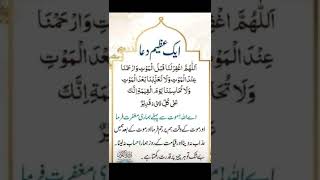 ایک عظیم دعا
اَللّٰهُمَّ اغْفِرْ لَنَا قَبْلَ الْمَوْتِ وَارْحَمْنَا
عِنْدَ الْمَوْتِ وَلَا تُعَذِّبْنَا بَعْدَ الْمَوْتِ
وَلَا تُحَاسِبْنَا يَوْمَ الْقِيٰمَةِ اِنَّكَ
عَلٰى كُلِّ
اے اللہ! موت سے پہلے ہماری مغفرت فرما
اور موت کے وقت ہم پر رحم فرما اور موت کے بعد ہمیں
عذاب نہ دینا اور قیامت کے روز ہمارا حساب نہ لینا۔
بے شک تو ہر چیز پر قدرت رکھتا ہے۔